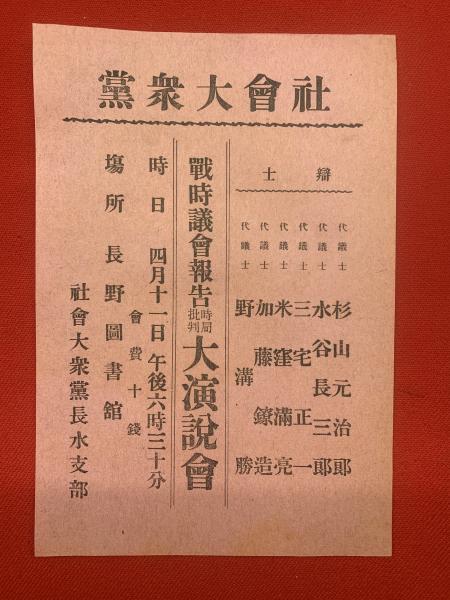 社會大衆黨
辯士
代議士 杉山元治郎
代議士 水谷長三郎
代議士 三宅正一
代議士 米窪滿亮
代議士 加藤鐐造
代議士 野溝勝
戰時議會報告 時局批判 大演說會
時日 四月十一日午後六時三十分
會費十錢
場所 長野圖書館
社會大衆黨長水支部